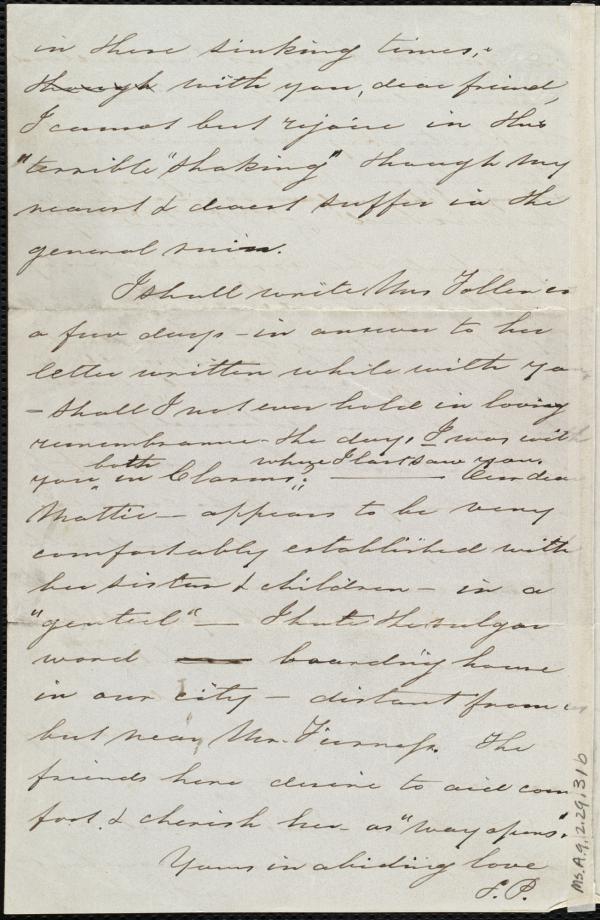 in these sinking times,.
though with you, dear friend,
I cannot but rejoice in this
"terrible "shaking" though my
nearest & dearest suffer in the
general ruin.
I shall write Mrs Follen in
a few days - in answer to her
letter written while with you
- Shall I not ever hold in loving
remembrance the days, I was with
both where I last saw you.
you in Clarens; — Our dear
Mattie - appears to be very
comfortably established with
her sister & children - in a
"genteel" - I hate the vulgar
word boarding house
in our city - distant from us
but near Mr. Furness. The
friends here desire to aid com
fort. & cherish her - as "way opens".
Yours in abiding love
S. P.
Ms. A. 9. 2. 29, 31b